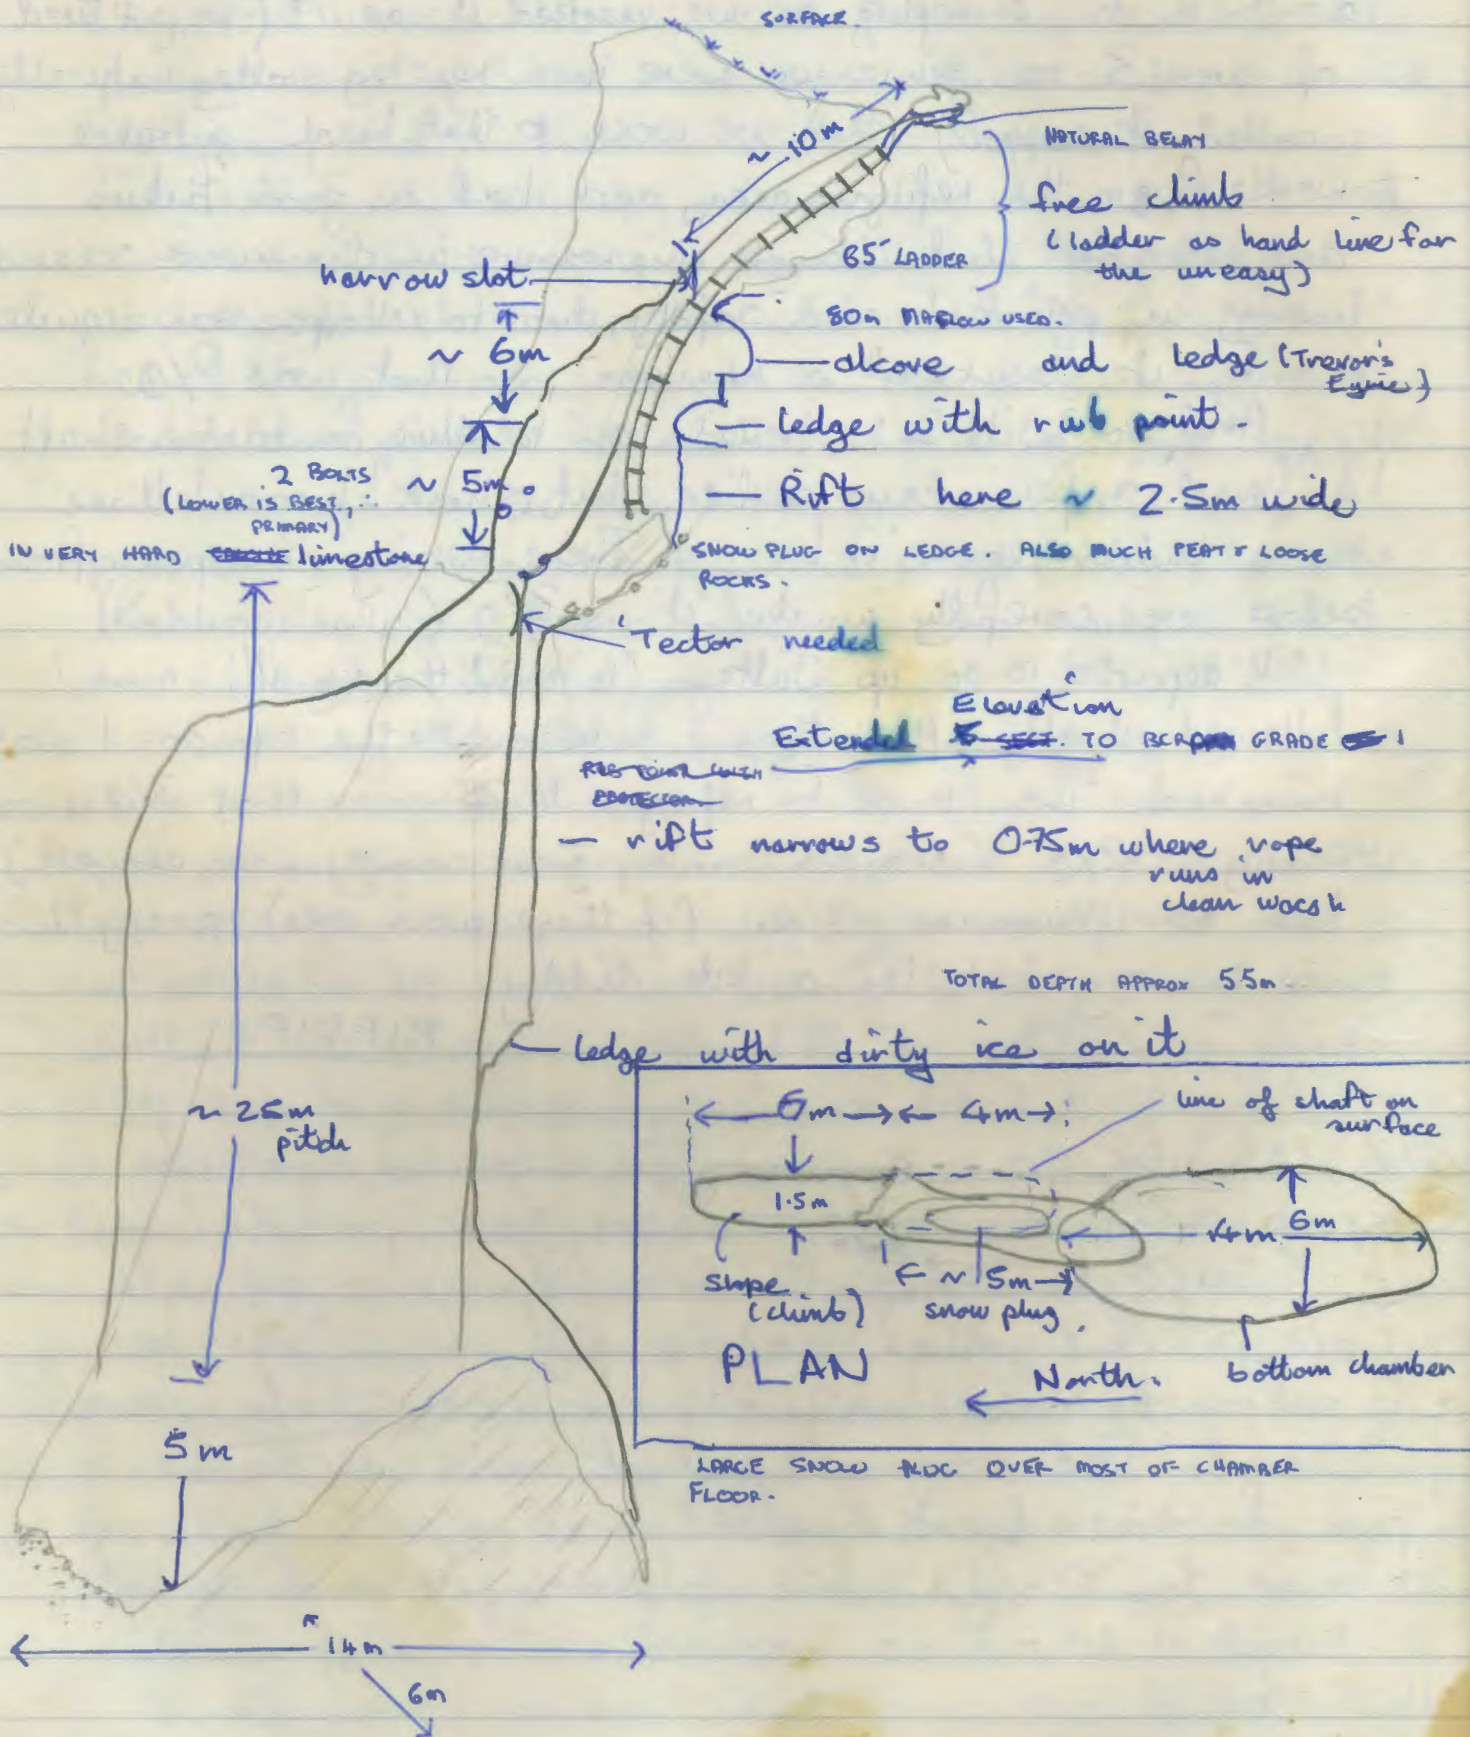 SURFACE.
~ 10m
NATURAL BELAY
free climb
(ladder as hand line for
the uneasy)
65' LADDER
narrow slot
80m MARLOW USED.
~ 6m
alcove and ledge (Trevor's
Eyrie)
ledge with rub point.
2 BOLTS
(LOWER IS BEST, ∴
PRIMARY)
~ 5m
Rift here ~ 2.5m wide
IN VERY HARD limestone
SNOW PLUG ON LEDGE. ALSO MUCH PEAT & LOOSE
ROCKS.
'Tector needed
Elevation
Extended TO BCRA GRADE 1
RUB POINT WITH
PROTECTOR
rift narrows to 0.75m where rope
runs in
clean wash
TOTAL DEPTH APPROX 55m.
ledge with dirty ice on it
~ 25m
pitch
6m 4m
line of shaft on
surface
1.5m
4m 6m
slope
(climb)
~ 5m
snow plug.
PLAN
North.
bottom chamber
5m
LARGE SNOW PLUG OVER MOST OF CHAMBER
FLOOR.
14m
6m